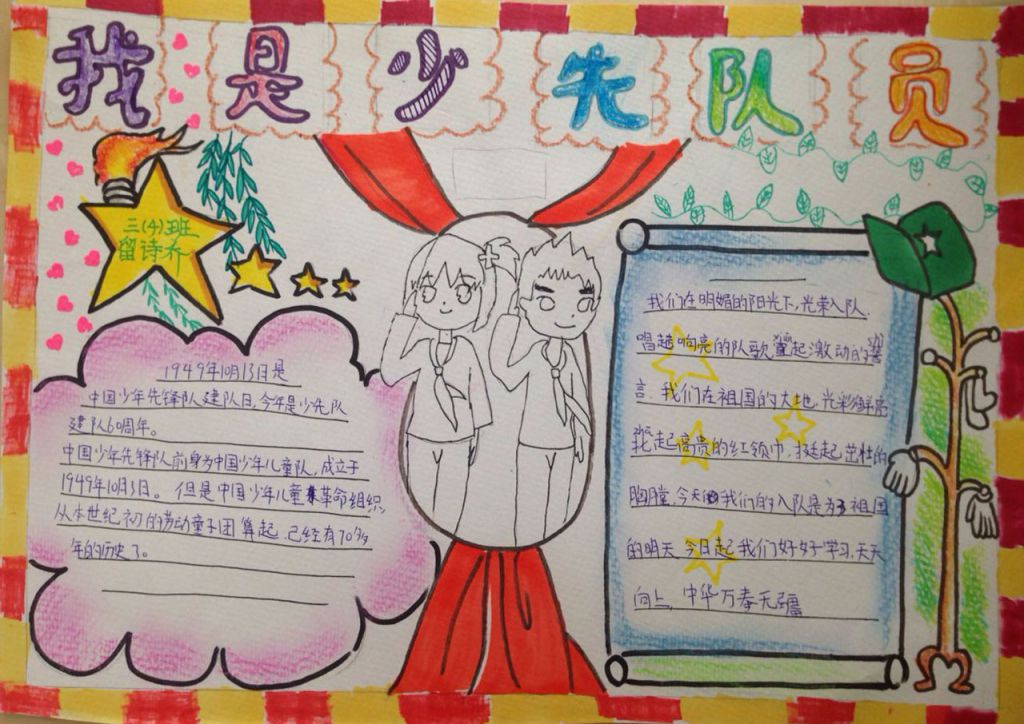 我是少先队员
三(4)班
留诗乔
1949年10月13日是
中国少年先锋队建队日,今年是少先队
建队60周年。
中国少年先锋队前身为中国少年儿童队,成立于
1949年10月13日。但是中国少年儿童革命组织
从本世纪初的劳动童子团算起,已经有70多
年的历史了。
我们在明媚的阳光下,光荣入队,
唱起响亮的队歌,起激动的
言,我们在祖国的大地,光彩鲜亮
起高贵的红领巾,挺起茁壮的
胸膛,今天我们的入队是为了祖国
的明天,今日起我们好好学习,天天
向上,中华万寿无疆